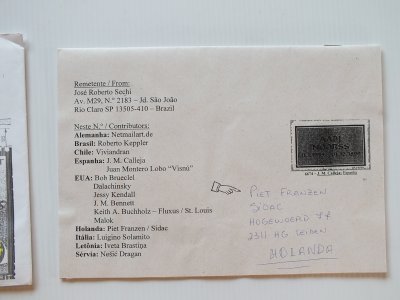 Remetente / From:
José Roberto Sechi
Av. M29, N.º 2183 – Jd. São João
Rio Claro SP 13505-410 – Brazil
Neste N.º / Contributors:
Alemanha: Netmailart.de
Brasil: Roberto Keppler
Chile: Viviandran
Espanha: J. M. Calleja
Juan Montero Lobo "Visnú"
EUA: Bob Brueckl
Dalachinsky
Jessy Kendall
J. M. Bennett
Keith A. Buchholz – Fluxus / St. Louis
Malok
Holanda: Piet Franzen / Sidac
Itália: Luigino Solamito
Letônia: Iveta Brastiņa
Sérvia: Nešić Dragan
J. M. Calleja, España
PIET FRANZEN
SIDAC
HOGEWOERD 77
2311 HG LEIDEN
HOLANDA